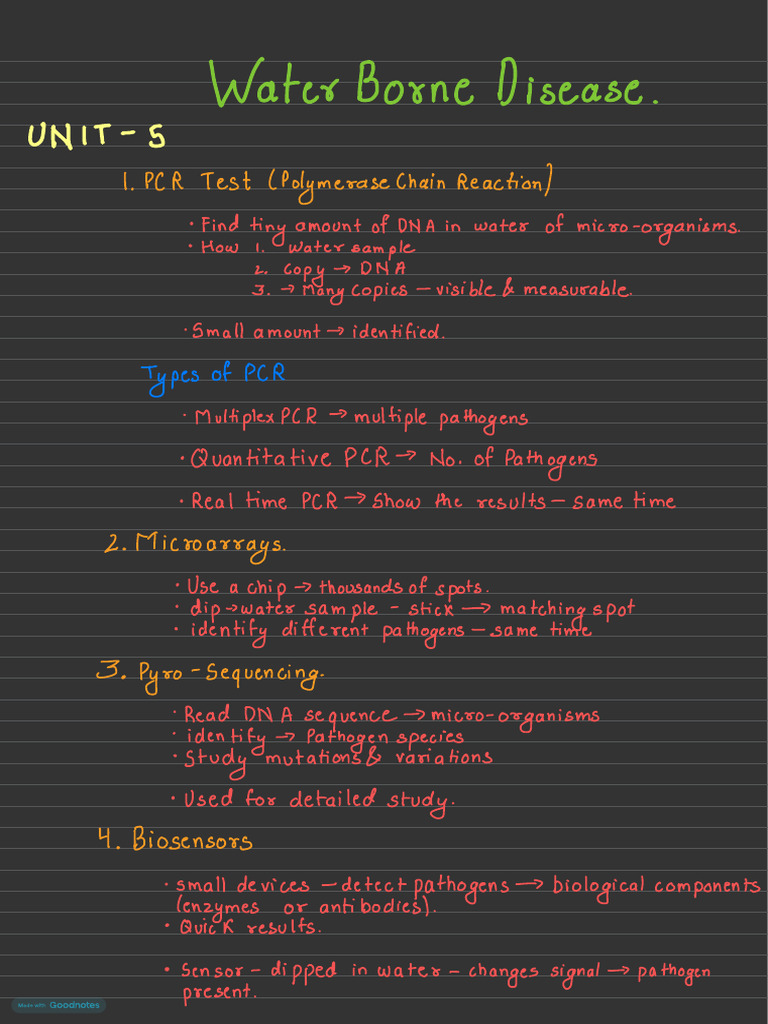 Water Borne Disease.
UNIT - 5
1. PCR Test (Polymerase Chain Reaction)
• Find tiny amount of DNA in water of micro-organisms.
• How 1. Water sample
2. Copy → DNA
3. → Many Copies — visible & measurable.
• Small amount → identified.
Types of PCR
• Multiplex PCR → multiple pathogens
• Quantitative PCR → No. of Pathogens
• Real time PCR → Show the results — same time
2. Microarrays.
• Use a chip → thousands of spots.
• dip → water sample - stick → matching spot
• identify different pathogens — same time
3. Pyro - Sequencing.
• Read DNA sequence → micro-organisms
• identify → Pathogen species
• Study mutations & variations
• Used for detailed study.
4. Biosensors
• small devices — detect pathogens → biological components
(enzymes or antibodies).
• Quick results.
• Sensor - dipped in water - changes signal → pathogen
present.
Made with Goodnotes